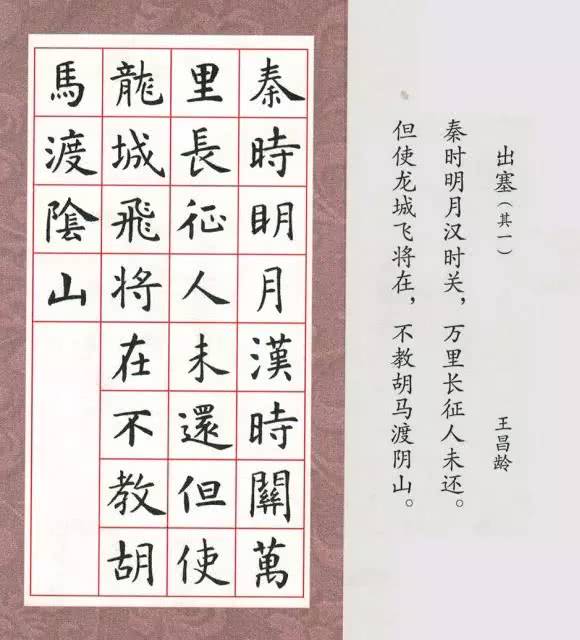 秦時明月漢時關萬
里長征人未還但使
龍城飛将在不教胡
馬渡陰山
出塞（其一） 王昌龄
秦时明月汉时关，万里长征人未还。
但使龙城飞将在，不教胡马渡阴山。